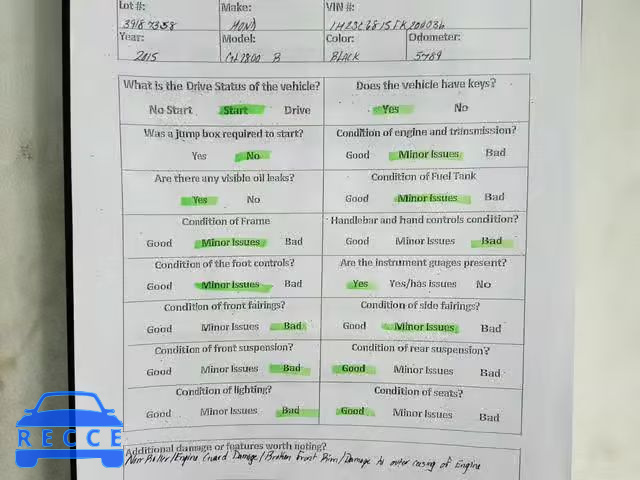 Lot #: Make: VIN #:
39187358 HOND 1HFSC6815FK200036
Year: Model: Color: Odometer:
2015 GL1800 B BLACK 5789
What is the Drive Status of the vehicle? Does the vehicle have keys?
No Start Start Drive Yes No
Was a jump box required to start? Condition of engine and transmission?
Yes No Good Minor Issues Bad
Are there any visible oil leaks? Condition of Fuel Tank
Yes No Good Minor Issues Bad
Condition of Frame Handlebar and hand controls condition?
Good Minor Issues Bad Good Minor Issues Bad
Condition of the foot controls? Are the instrument guages present?
Good Minor Issues Bad Yes Yes/has issues No
Condition of front fairings? Condition of side fairings?
Good Minor Issues Bad Good Minor Issues Bad
Condition of front suspension? Condition of rear suspension?
Good Minor Issues Bad Good Minor Issues Bad
Condition of lighting? Condition of seats?
Good Minor Issues Bad Good Minor Issues Bad
Additional damage or features worth noting?
Non Roller/Engine Guard Damage/Broken Front Rim/Damage to outer casing of Engine
RECCE